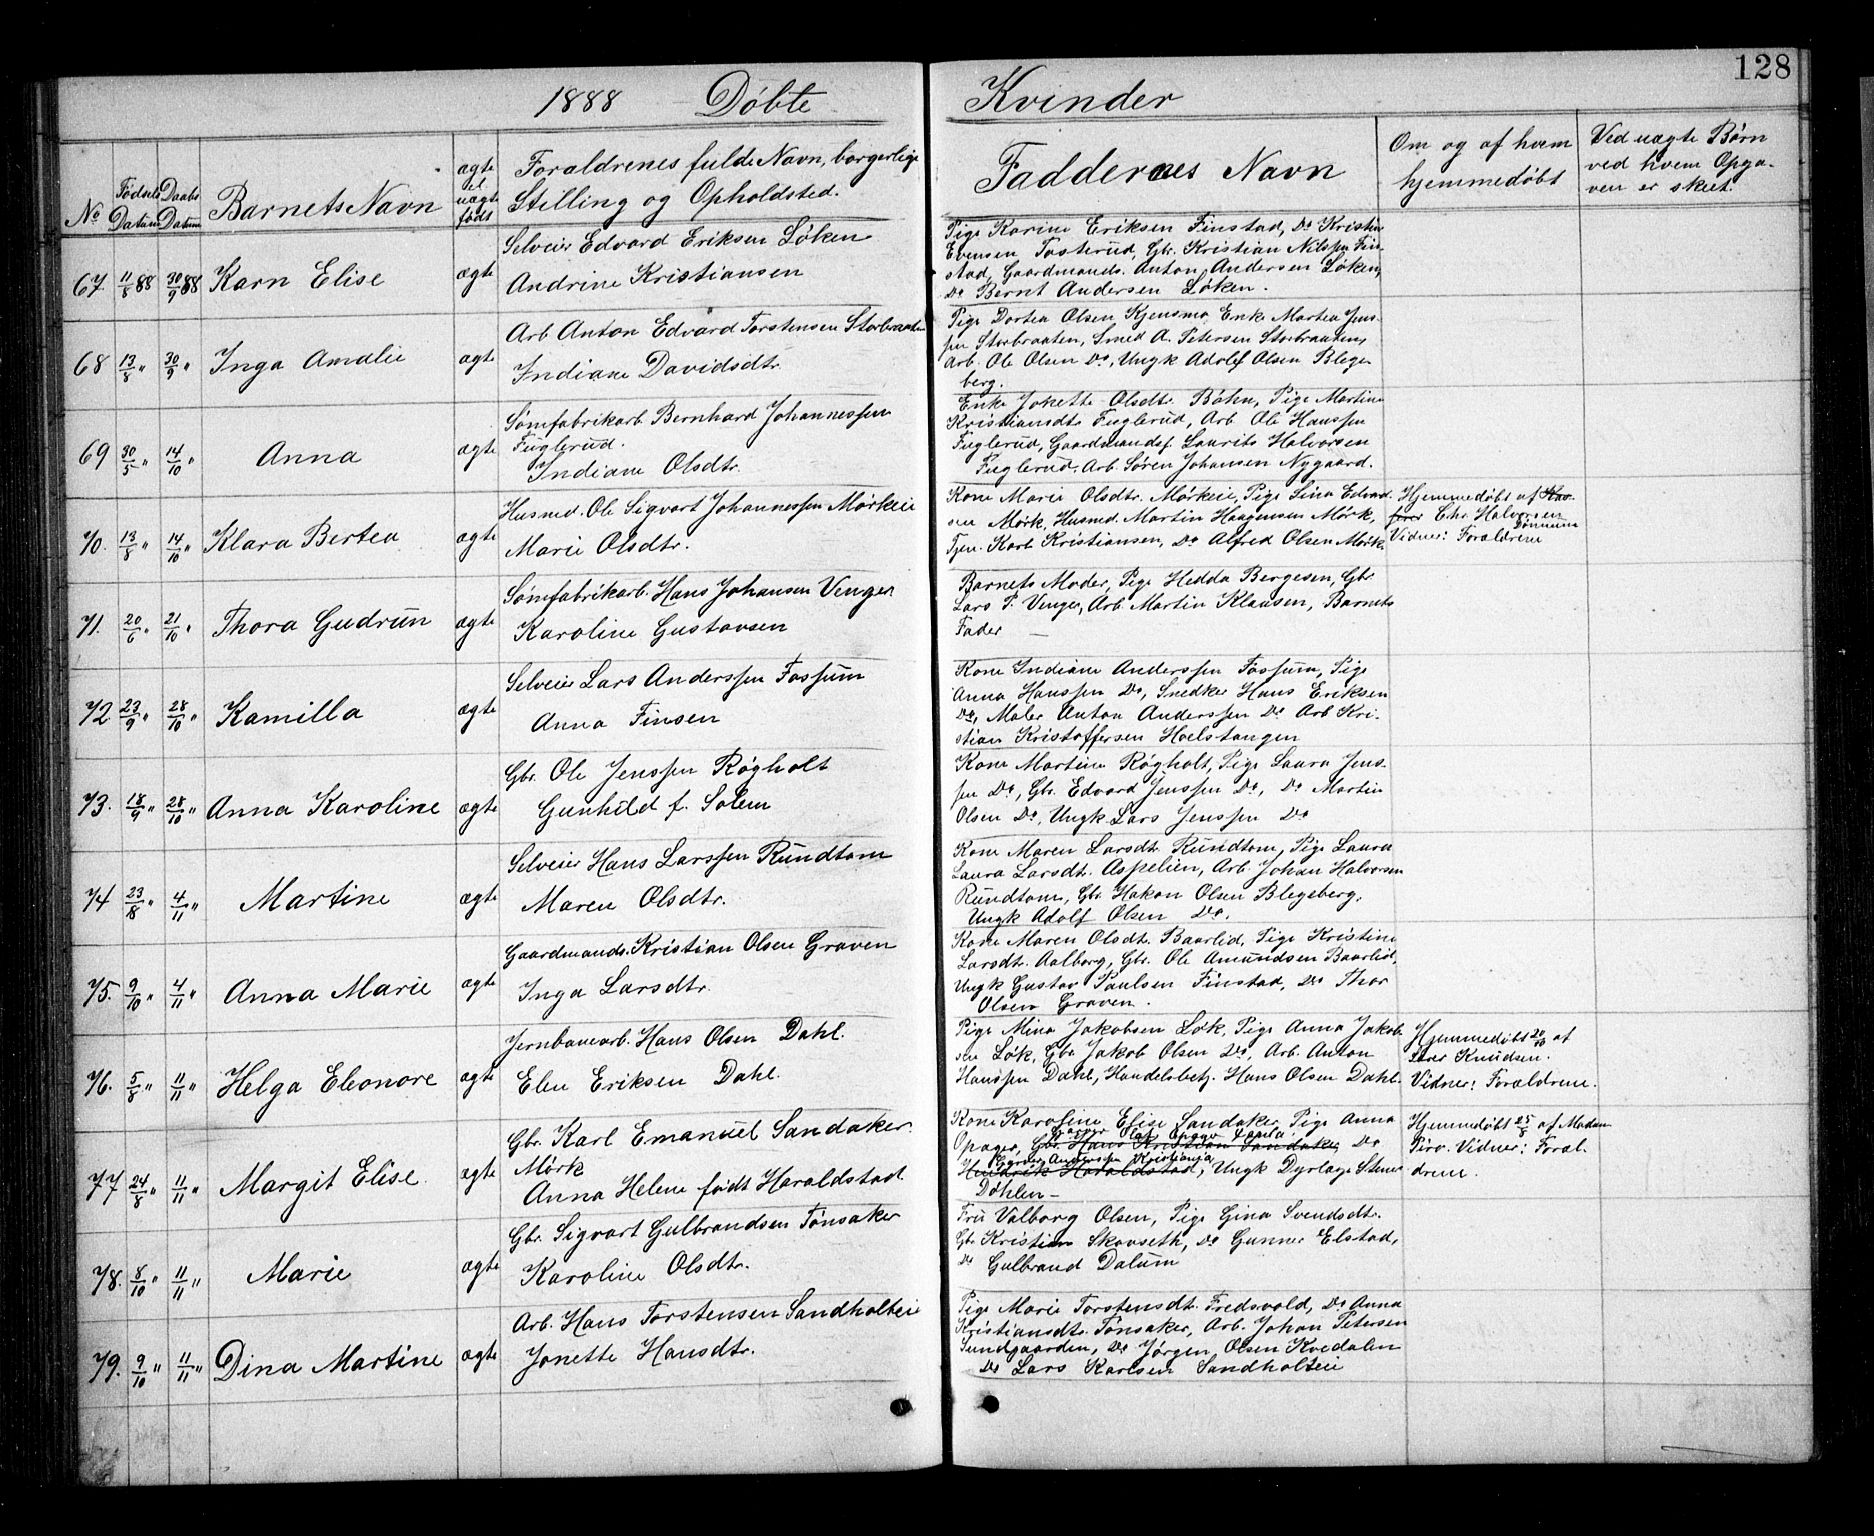 128
1888 Døbte Kvinder
No
Fødsels Datum
Daabs Datum
Barnets Navn
ægte el uægte født
Forældrenes fulde Navn, borgerlige
Stilling og Opholdsted.
Faddernes Navn
Om og af hvem
hjemmedøbt
Ved uægte Børn
ved hvem Opga-
ven er skeet.
67. 11/8 88 30/9 88 Karn Elise ægte
Selveier Edvard Eriksen Løken
Andrine Kristiansen
Pige Karine Eriksen Finstad, Do Kristine
Evensen Tosterud, Gbr. Kristian Nilssen Fin-
stad, Gaardmands. Anton Andersen Løken,
Do Bernt Andersen Løken.
68 13/8 " 30/9 " Inga Amalie ægte
Arb Anton Edvard Torstensen Storbraaten
Indiane Davidsdtr.
Pige Dortea Olsen Kjensmo Enke Martea Jens-
sen Storbraaten, Smed A. Petersen Storbraaten,
Arb. Ole Olsen Do, Ungk Adolf Olsen Blege
berg.
69 30/5 " 14/10 " Anna ægte
Sømfabrikarb. Bernhard Johannessen
Fuglerud.
Indiane Olsdtr.
Enke Jokette Olsdtr. Bøhn, Pige Martine
Kristiansdtr Fuglerud, Arb Ole Hanssen
Fuglerud, Gaardmandsf. Laurits Halvorsen
Fuglerud, Arb. Søren Johansen Nygaard.
70. 13/8 " 14/10 " Klara Bertea ægte
Husmd. Ole Sigvart Johannessen Mørkeie
Marie Olsdtr.
Kone Marie Olsdtr. Mørkeie, Pige Lina Edvard-
sen Mørk, Husmd. Martin Haagensen Mørk,
Tjen. Karl Kristiansen, Do Alfred Olsen Mørk.
Hjemmedøbt af
Chr. Halvorsen
Dønnum
Vidner: Forældrene
71. 20/6 " 21/10 " Thora Gudrun ægte
Sømfabrikarb. Hans Johansen Venger
Karoline Gustavsen
Barnets Moder, Pige Hedda Bergesen, Gbr.
Lars P. Venger, Arb Martin Klausen, Barnets
Fader —
72 23/9 " 28/10 " Kamilla ægte
Selveier Lars Anderssen Fossum
Anna Finsen
Kone Indiane Anderssen Fossum, Pige
Anna Hanssen Do, Snedker Hans Eriksen
Do, Maler Anton Anderssen Do Arb Kri-
stian Kristoffersen Hoelstangen
73. 18/9 " 28/10 " Anna Karoline ægte
Gbr. Ole Jenssen Røgholt
Gunhild f. Solem
Kone Martine Røgholt, Pige Laura Jens-
sen Do, Gbr. Edvard Jenssen Do, Do Martin
Olsen Do, Ungk Lars Jenssen Do
74 23/8 " 4/11 " Martine ægte
Selveier Hans Larssen Rundtom
Maren Olsdtr.
Kone Maren Larsdtr. Rundtom, Pige Laura
Laura Larsdtr. Aspelien, Arb. Johan Halvorsen
Rundtom, Gbr. Hakon Olsen Blegeberg,
Ungk Adolf Olsen Do.
75. 9/10 " 4/11 " Anna Marie ægte
Gaardmands. Kristian Olsen Graven
Inga Larsdtr.
Kone Maren Olsdtr. Baarlid, Pige Kristine
Larsdtr. Aalborg, Gbr. Ole Amundsen Baarlid,
Ungk Gustav Paulsen Finstad, Do Thor
Olsen Graven.
76. 5/8 " 11/11 " Helga Eleonore ægte
Jernbanearb. Hans Olsen Dahl.
Elen Eriksen Dahl.
Pige Mina Jakobsen Løk, Pige Anna Jakob-
sen Løk, Gbr Jakob Olsen Do, Arb. Anton
Hanssen Dahl, Handelsbetj. Hans Olsen Dahl.
Hjemmedøbt 20/10 af
Lærer Knudsen.
Vidner: Forældrene.
77 24/8 " 11/11 " Margit Elise. ægte
Gbr. Karl Emanuel Sandaker
Mørk
Anna Helene født Haraldstad
Kone Karoline Elise Sandaker, Pige Anna
Opager, Gbr. Hans Kristian Sandaker Do
Anderssen Kristiania
Hendrik Haraldstad, Ungk Dyrlæge Stener
Døhlen —
Hjemmedøbt 25/8 af Madam
Piro. Vidner: Foræl-
drene.
78. 8/10 " 11/11 " Marie ægte
Gbr. Sigvart Gulbrandsen Tønsaker
Karoline Olsdtr.
Fru Valborg Olsen, Pige Gina Svendsdtr.
Gbr Kristian Skovseth, Do Gunner Elstad,
Do Gulbrand Dalum
79. 9/10 " 11/11 " Dina Martine ægte
Arb. Hans Torstensen Sandholteie
Jonette Hansdtr.
Pige Marie Torstensdtr. Fredsvold, Do Anna
Kristiansdtr. Tønsaker, Arb. Johan Petersen
Sundgaarden, Do Jørgen Olsen Kvedalen
Do Lars Karlsen Sandholteie